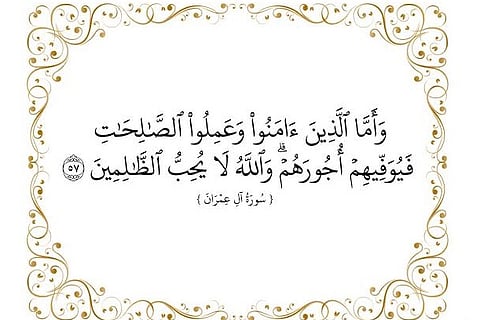 وَأَمَّا ٱلَّذِينَ ءَامَنُوا۟ وَعَمِلُوا۟ ٱلصَّـٰلِحَـٰتِ
فَيُوَفِّيهِمْ أُجُورَهُمْ ۗ وَٱللَّهُ لَا يُحِبُّ ٱلظَّـٰلِمِينَ ٥٧
{ سُورَةُ آلِ عِمْرَانَ }